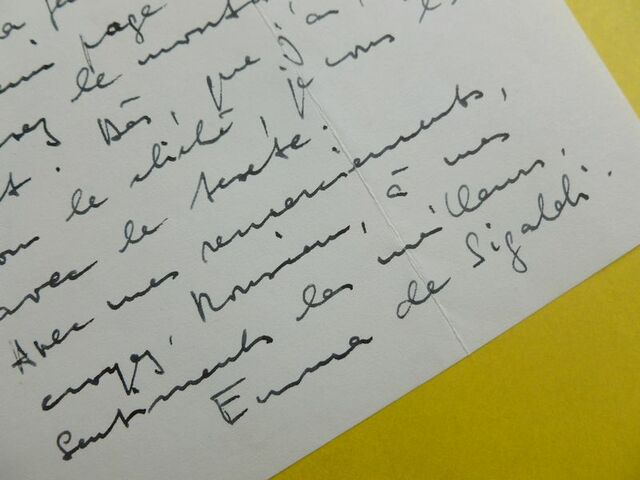 page
le
Dès, que j'ai
le cliché, je vous
avec le texte.
Avec mes remerciements,
croyez, Monsieur, à mes
Sentiments les meilleurs,
Emma de Sigaldi.